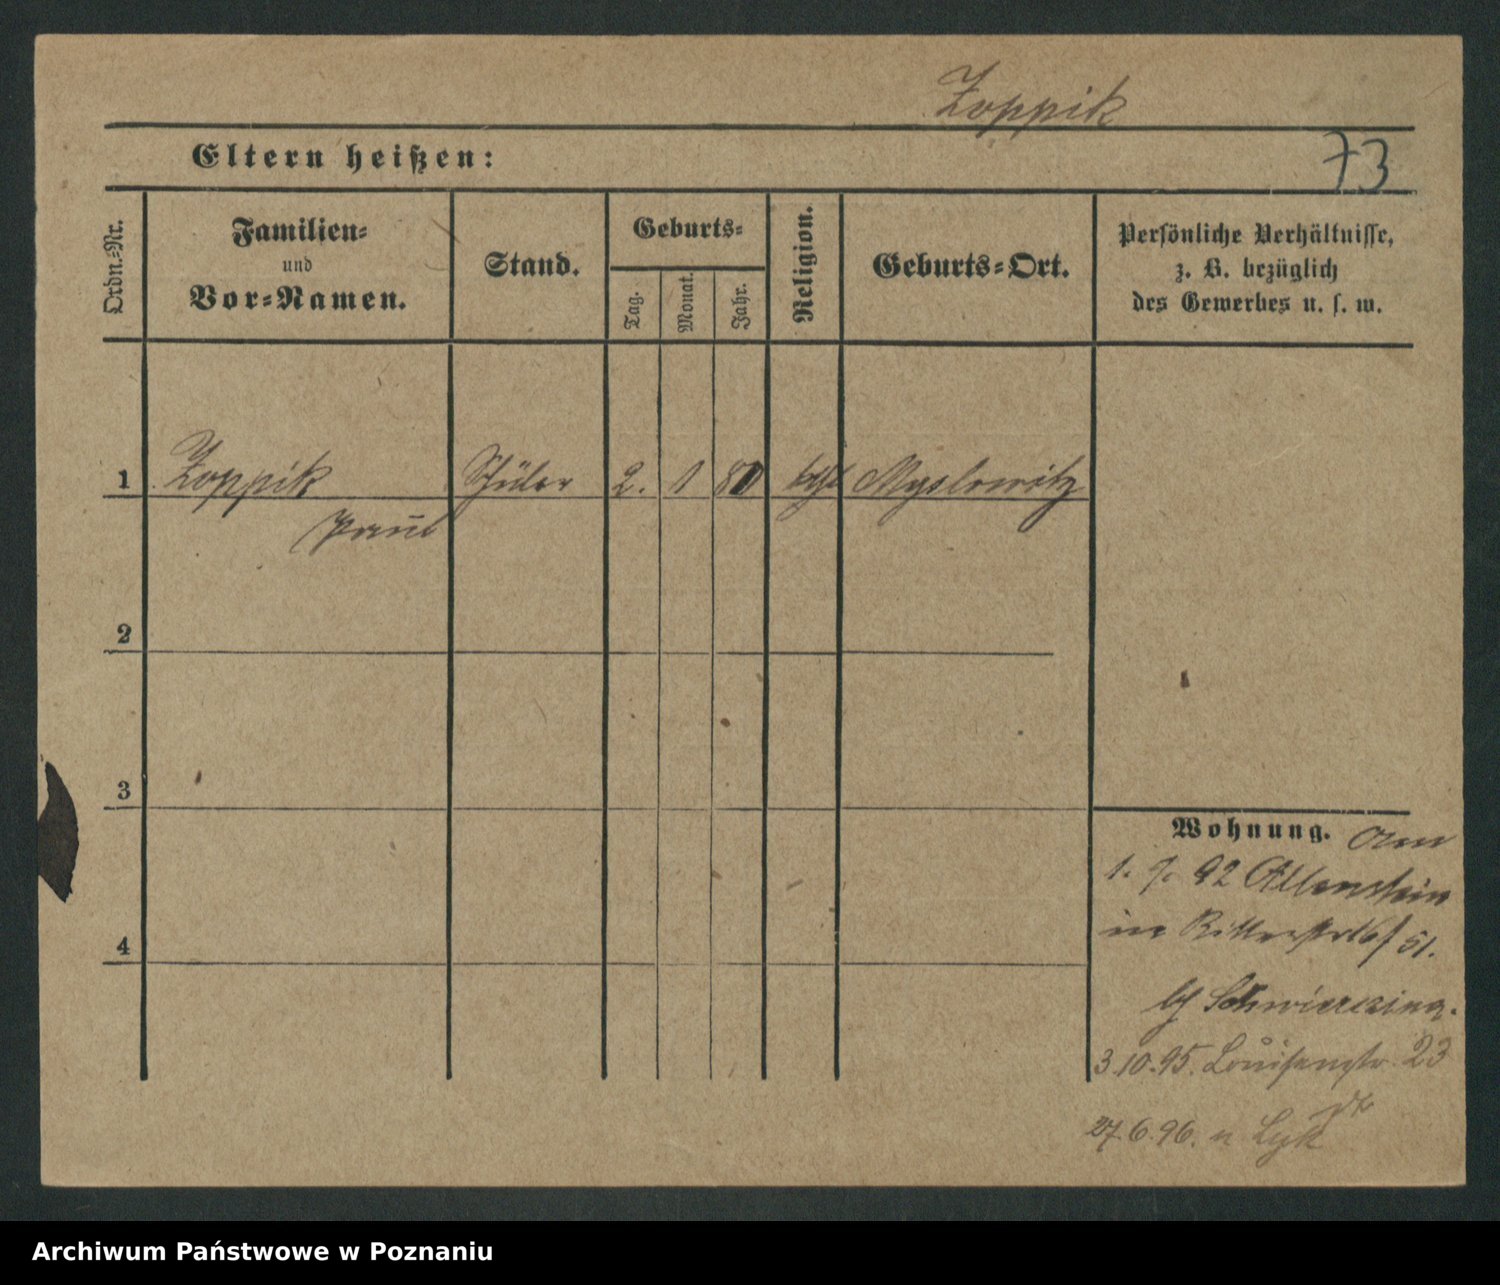 Zoppik
Eltern heißen:
73
Ordn.-Nr.
Familien-
und
Vor-Namen.
Stand.
Geburts-
Tag.
Monat.
Jahr.
Religion.
Geburts-Ort.
Persönliche Verhältnisse,
z. B. bezüglich
des Gewerbes u. s. w.
1 Zoppik Schüler 2. 1 80 kath Myslowitz
Paul
2
3
4
Wohnung. am
1. 7. 92 Allenstein
in Ritterstr 16/51.
bei
3.10.95. Louisenstr. 23
27.6.96. n Lyk
Archiwum Państwowe w Poznaniu